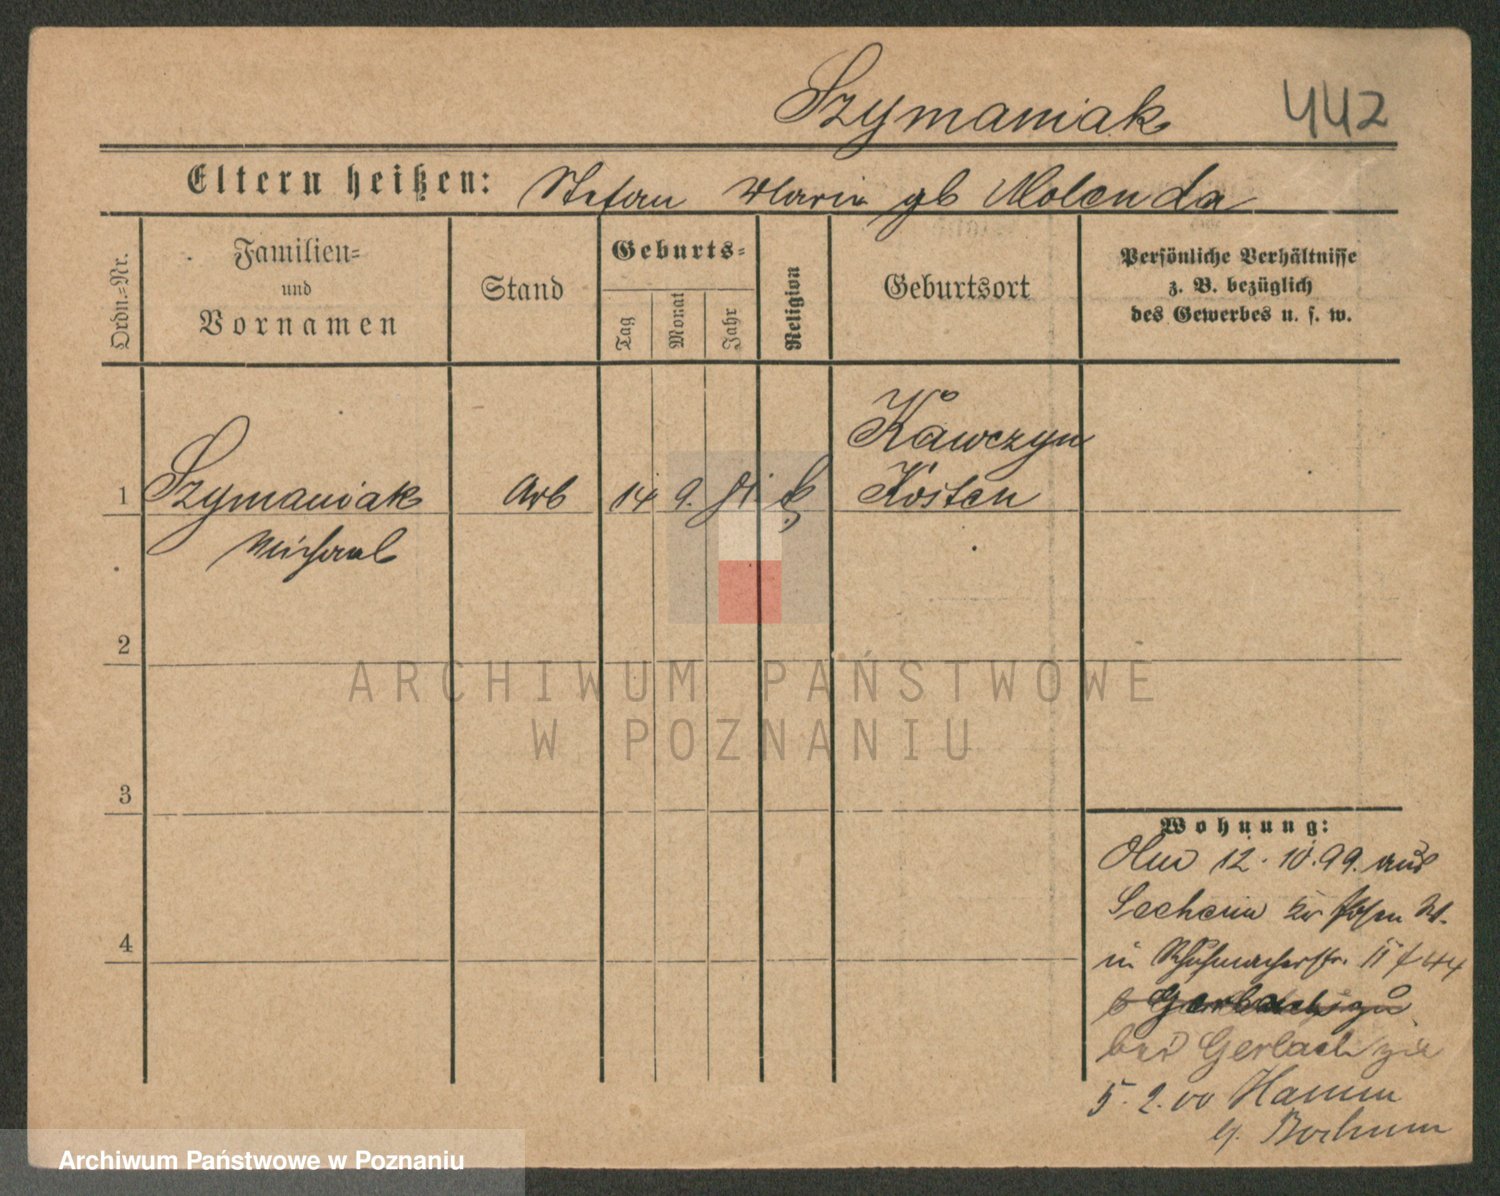 Szymaniak 442
Eltern heißen: Stefan Maria gb Molenda
Ordn.=Nr.
Familien=
und
Vornamen
Stand
Geburts=
Tag
Monat
Jahr
Religion
Geburtsort
Persönliche Verhältnisse
z. B. bezüglich
des Gewerbes u. s. w.
Kawczyn
1 Szymaniak Arb 14 9. 81 k Kosten
Michael
2
3
4
Wohnung:
12.10.99. aus
Posen W.
in Schuhmacherstr. 11
b Gerlach zu
bei Gerlach zu
5.2.00 Hamm
Bochum
ARCHIWUM PAŃSTWOWE
W POZNANIU
Archiwum Państwowe w Poznaniu